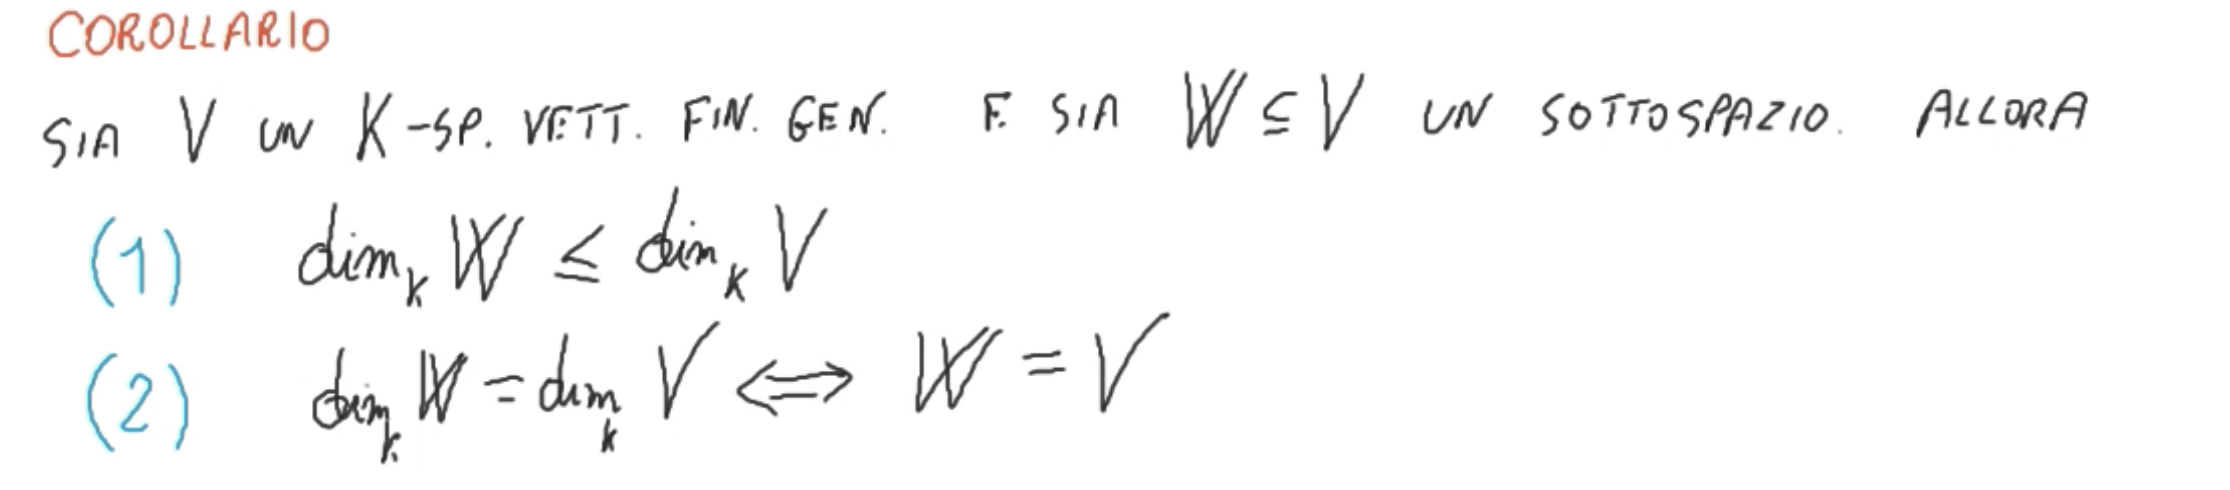 COROLLARIO
SIA V UN K-SP. VETT. FIN. GEN. E SIA W ⊆ V UN SOTTOSPAZIO. ALLORA
(1) dim_K W ≤ dim_K V
(2) dim_K W = dim_K V ⟺ W = V